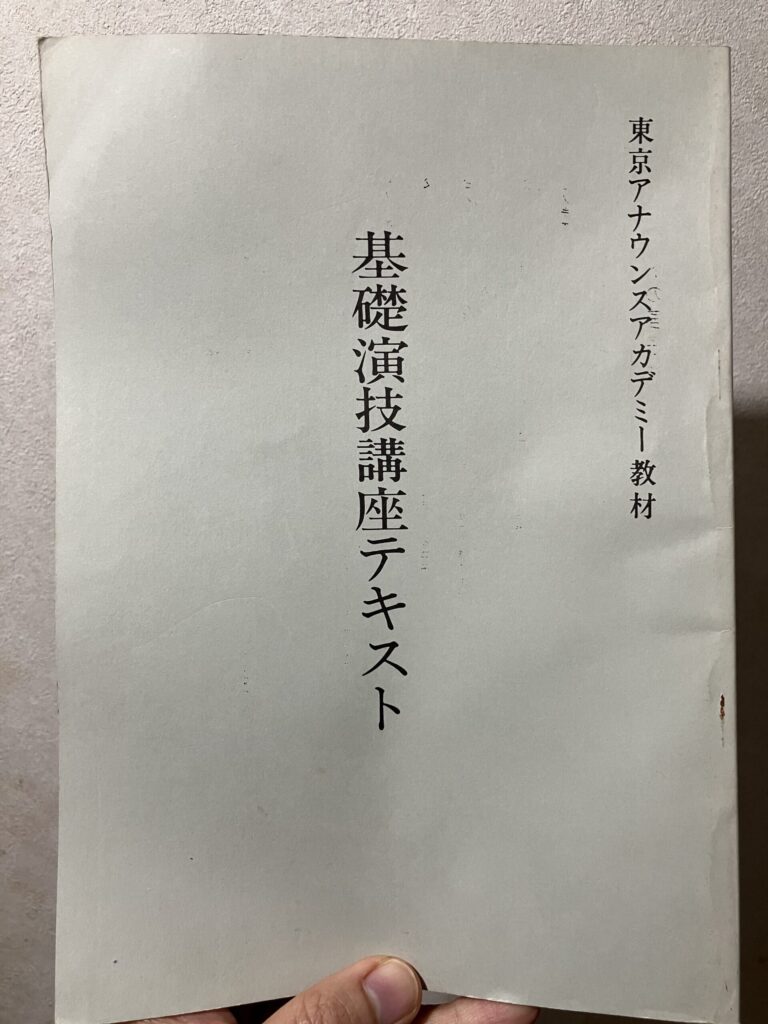 東京アナウンスアカデミー教材
基礎演技講座テキスト